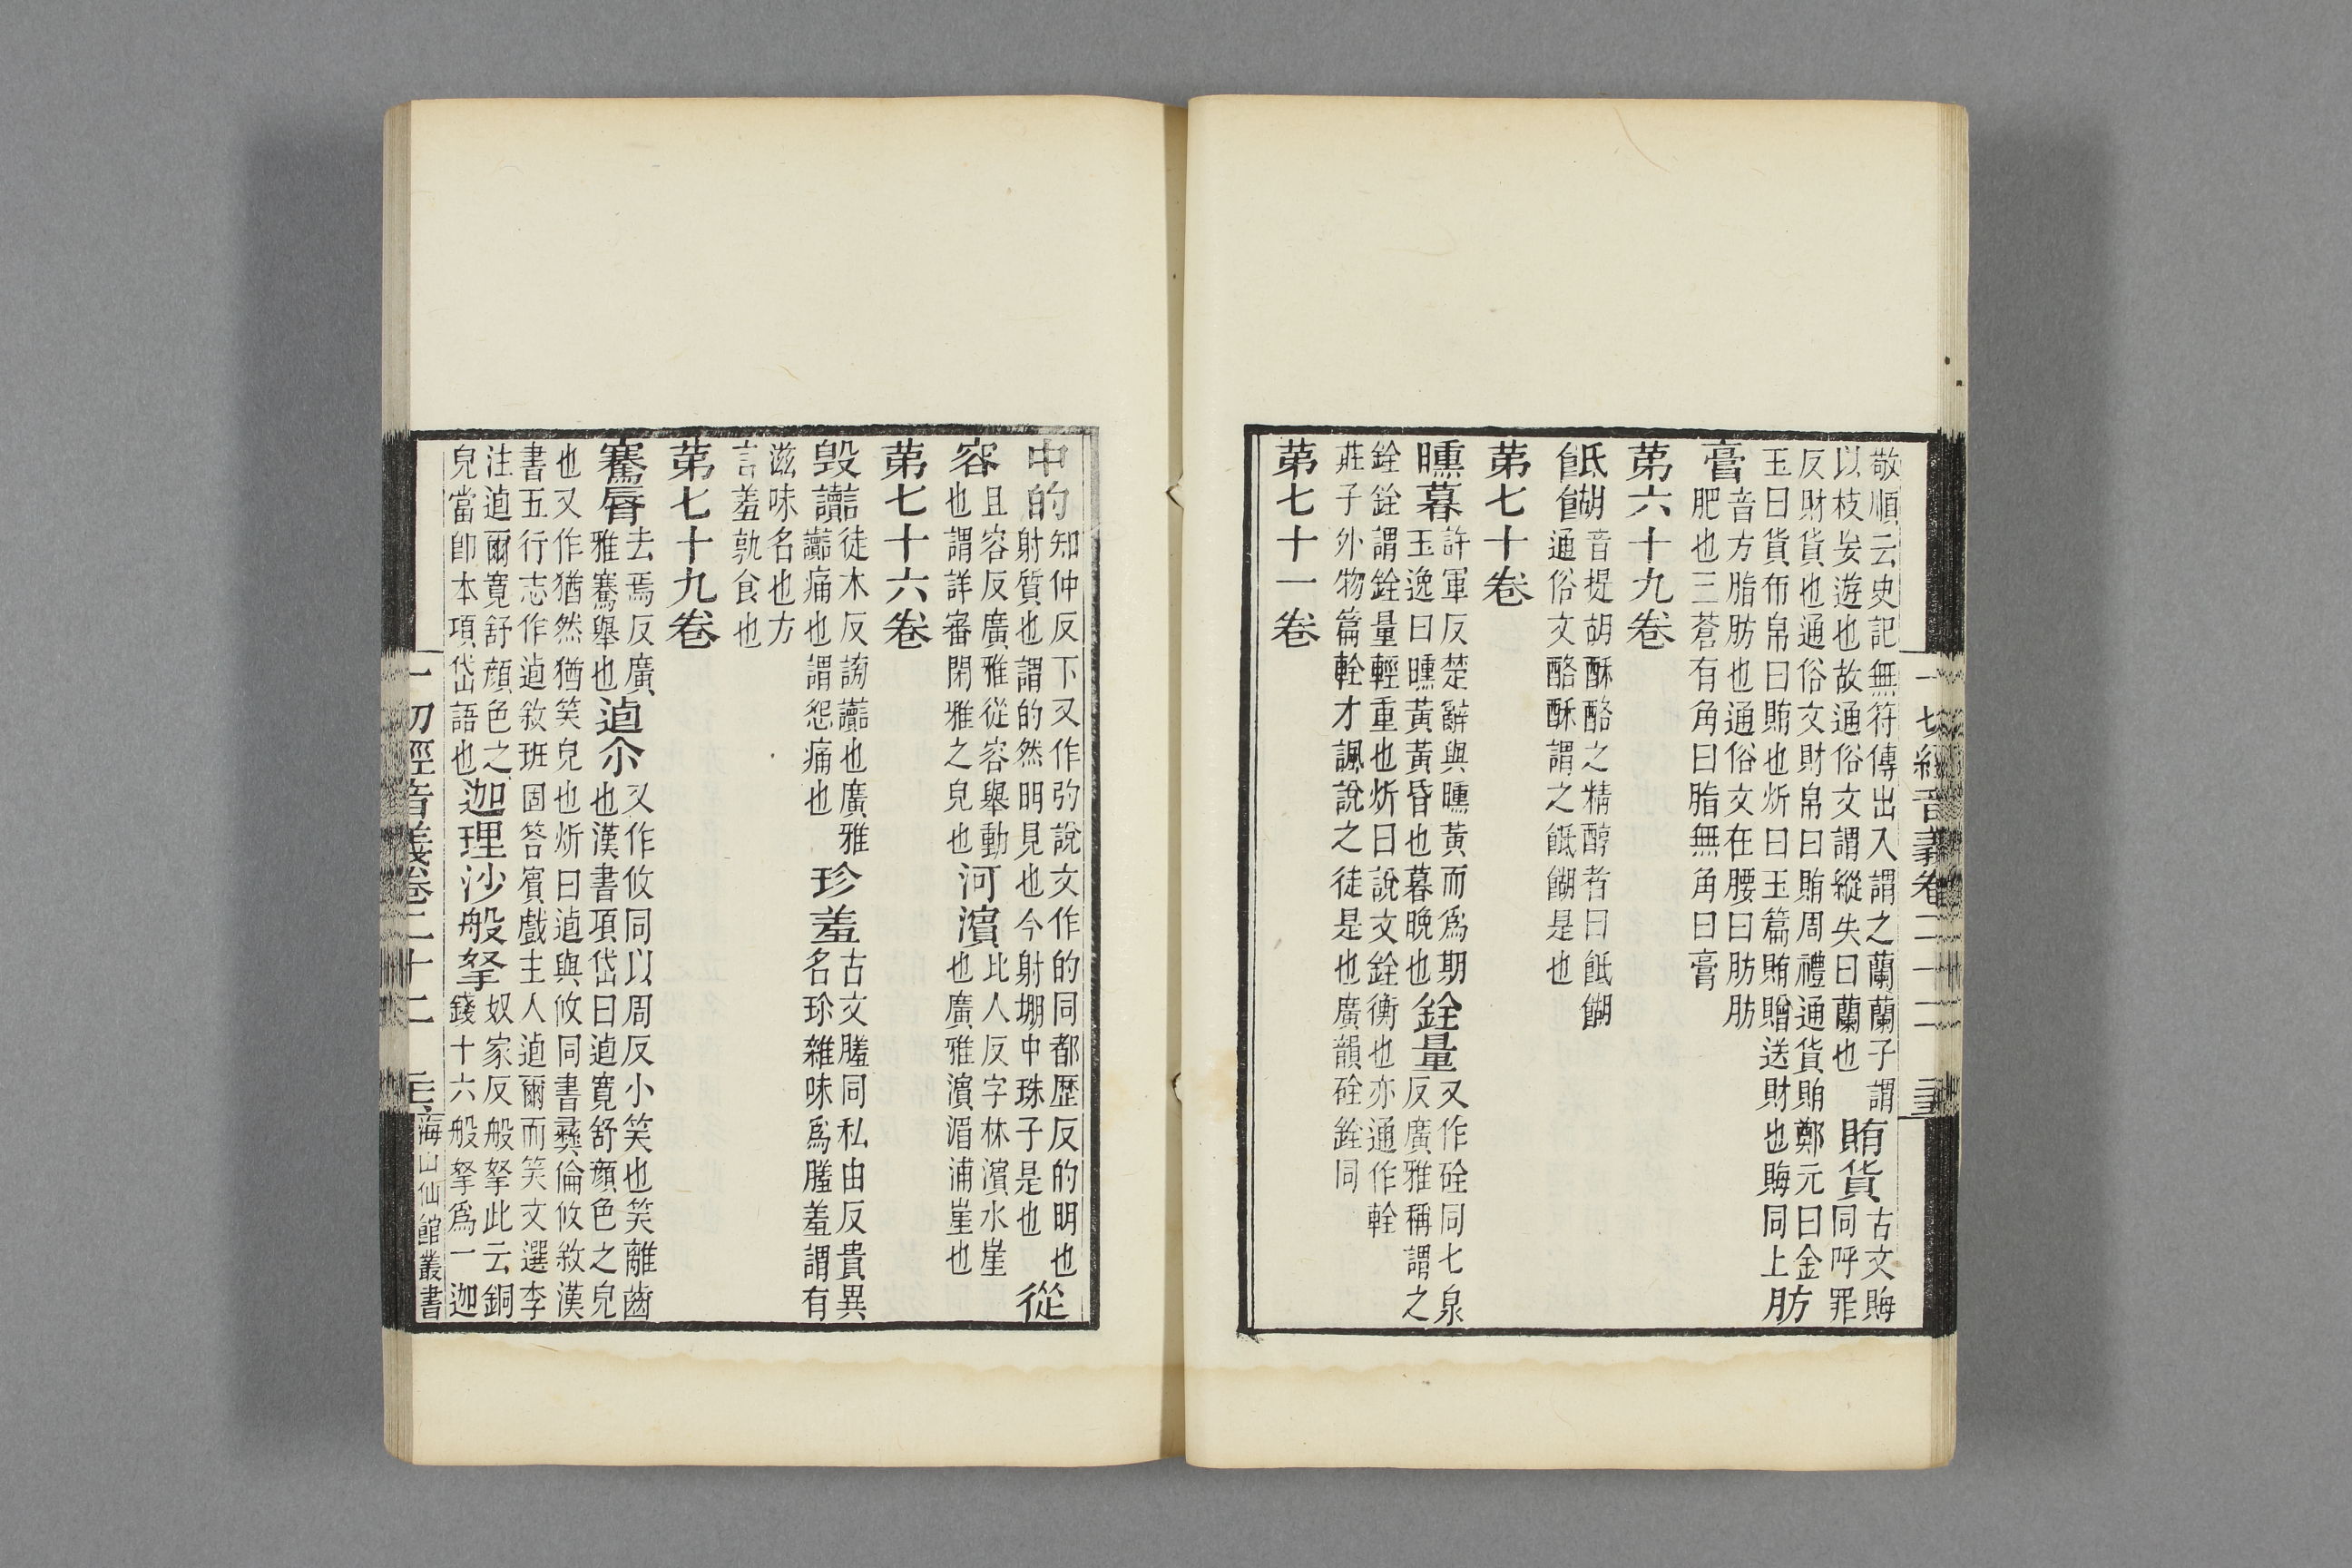 敬順云史記無符傳出入謂之蘭蘭子謂
以枝妄遊也故通俗文謂縱失曰蘭也
賄貨
古文賄
同呼罪
反財貨也通俗文財帛曰賄周禮通貨賄鄭元曰金
玉曰貨布帛曰賄也炘曰玉篇賄贈送財也賄同上
肪
膏
音方脂肪也通俗文在腰曰肪肪
肥也三蒼有角曰脂無角曰膏
第六十九卷
䬫餬
音提胡酥酪之精醇者曰䬫餬
通俗文酪酥謂之䬫餬是也
第七十卷
曛暮
許軍反楚辭與曛黃而爲期
玉逸曰曛黃黃昏也暮晚也
銓量
又作硂同七泉
反廣雅稱謂之
銓銓謂銓量輕重也炘曰說文銓衡也亦通作輇
莊子外物篇輇才諷說之徒是也廣韻硂銓同
第七十一卷
一切經音義卷二十二
中的
知仲反下又作㣿說文作的同都歷反的明也
射質也謂的然明見也今射堋中珠子是也
從
容
且容反廣雅從容舉動
也謂詳審閑雅之皃也
河濱
比人反字林濱水崖
也廣雅濱湄浦崖也
第七十六卷
毀讟
徒木反謗讟也廣雅
讟痛也謂怨痛也
珍羞
古文𦠄同私由反貴異
名珍雜味爲𦠄羞謂有
滋味名也方
言羞孰食也
第七十九卷
騫脣
去焉反廣
雅騫舉也
逌尒
又作攸同以周反小笑也笑離齒
也漢書項岱曰逌寬舒顏色之皃
也又作猶然猶笑皃也炘曰逌與攸同書彝倫攸敘漢
書五行志作逌敘班固答賓戲主人逌爾而笑文選李
注逌爾寬舒顏色之
皃當卽本項岱語也
迦理沙般拏
奴家反般拏此云銅
錢十六般拏爲一迦
一切經音義卷二十二
海山仙館叢書